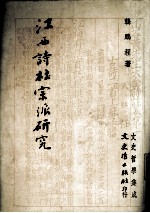 龔鵬程著
江西詩社宗派研究
文史哲學集成
文史哲出版社印行